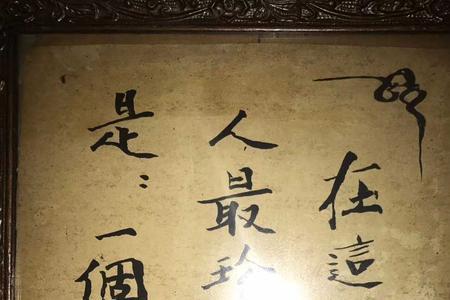 在這
人最珍
是：一個